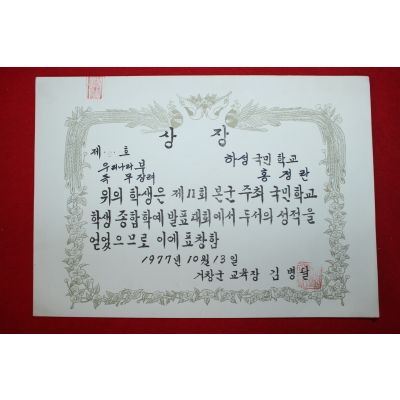 상 장
제 호
하성 국민학교
우리나라부
홍정란
독무 장려
위의 학생은 제11회 본군 주최 국민학교
학생 종합학예 발표대회에서 두서의 성적을
얻었으므로 이에 표창함
1977년 10월 13일
거창군 교육장 김병달